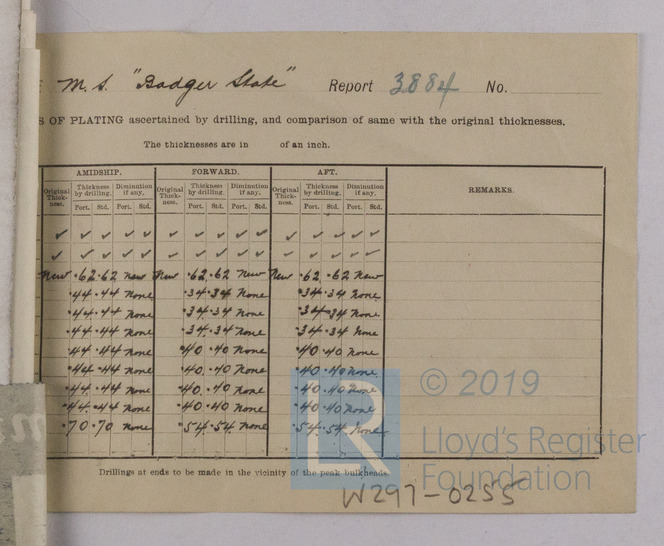 M.S. "Badger State" Report 3884 No.
S OF PLATING ascertained by drilling, and comparison of same with the original thicknesses.
The thicknesses are in of an inch.
AMIDSHIP. FORWARD. AFT. REMARKS.
Original Thickness. Thickness by drilling. Diminution if any. Original Thickness. Thickness by drilling. Diminution if any. Original Thickness. Thickness by drilling. Diminution if any.
Port. Std. Port. Std. Port. Std. Port. Std. Port. Std. Port. Std.
✓ ✓ ✓ ✓ ✓ ✓ ✓ ✓ ✓ ✓ ✓ ✓ ✓ ✓ ✓
✓ ✓ ✓ ✓ ✓ ✓ ✓ ✓ ✓ ✓ ✓ ✓ ✓ ✓ ✓
New .62 .62 New New .62 .62 New New .62 .62 New
.44 .44 None .34 .34 None .34 .34 None
.44 .44 None .34 .34 None .34 .34 None
.44 .44 None .34 .34 None .34 .34 None
.44 .44 None .40 .40 None .40 .40 None
.44 .44 None .40 .40 None .40 .40 None
.44 .44 None .40 .40 None .40 .40 None
.44 .44 None .40 .40 None .40 .40 None
.70 .70 None .54 .54 None .54 .54 None
Drillings at ends to be made in the vicinity of the peak bulkheads.
W297-0255
LR
© 2019
Lloyd's Register
Foundation